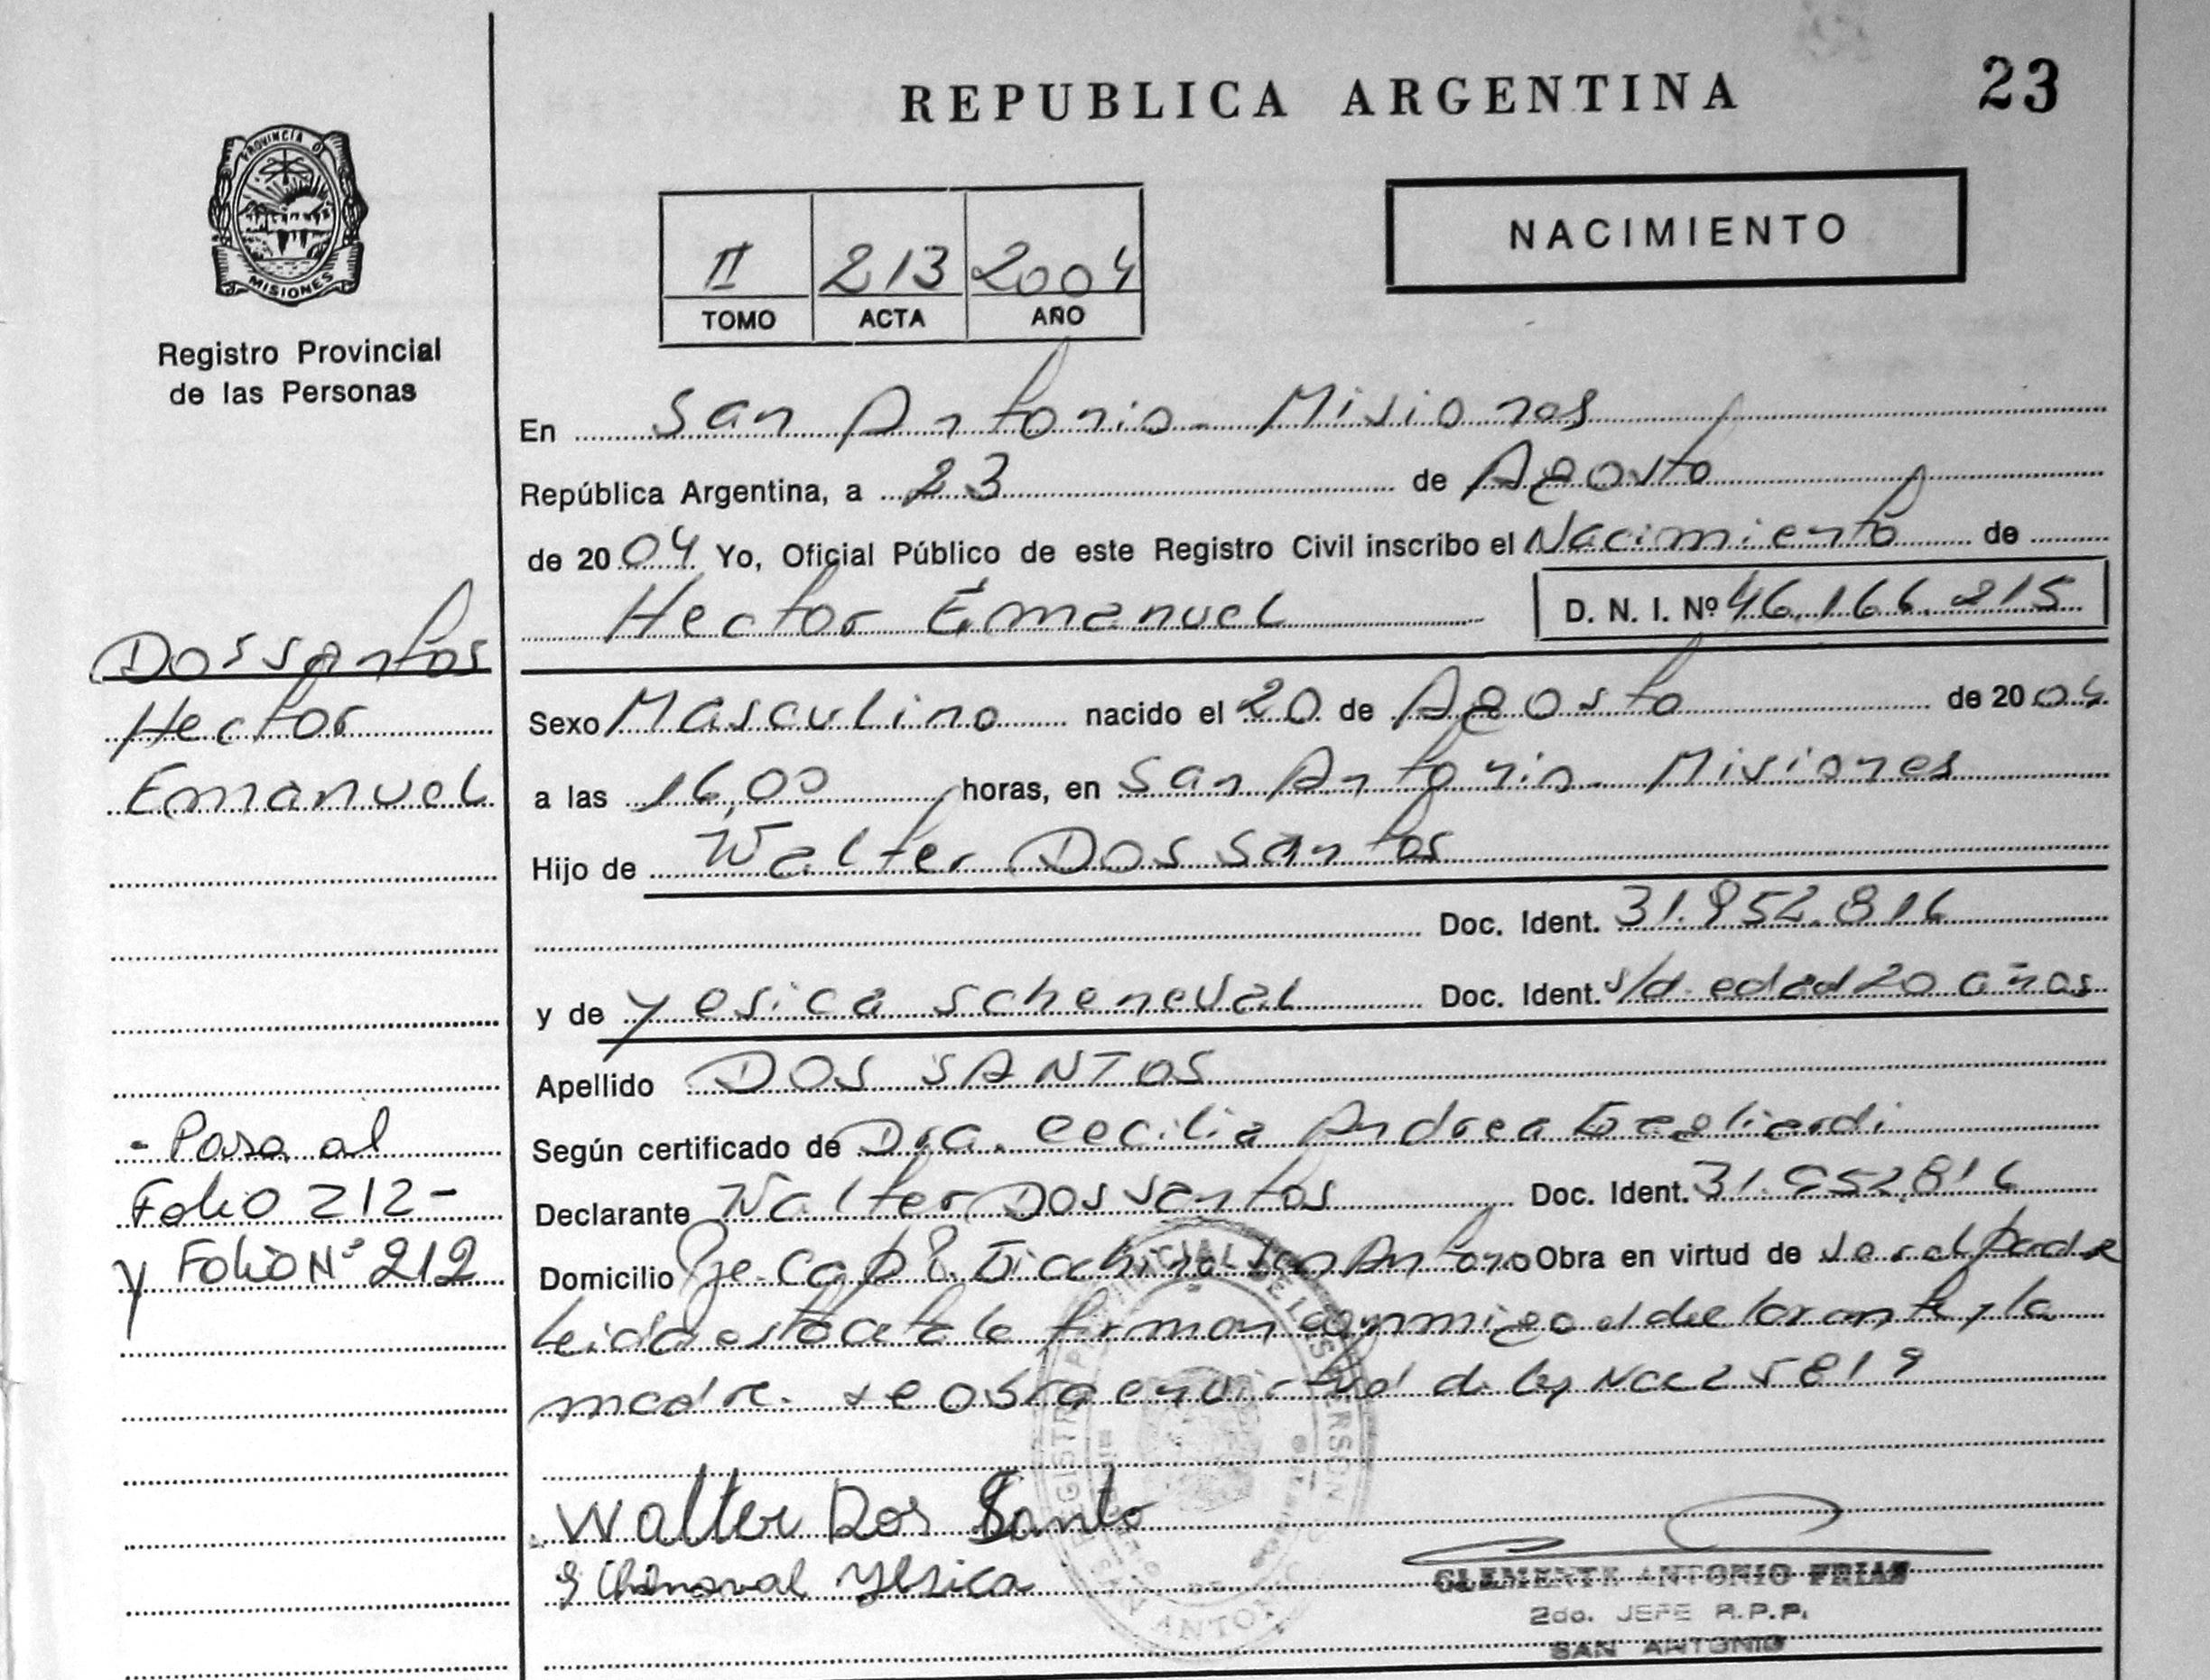 REPUBLICA ARGENTINA
23
PROVINCIA D
MISIONES
Registro Provincial
de las Personas
NACIMIENTO
II 213 2004
TOMO ACTA AÑO
En San Antonio - Misiones
República Argentina, a 23 de Agosto
de 2004 Yo, Oficial Público de este Registro Civil inscribo el Nacimiento de
Hector Emanuel D. N. I. Nº 46.166.215
Dos santos
Hector
Emanuel
Sexo Masculino nacido el 20 de Agosto de 2004
a las 16,00 horas, en San Antonio - Misiones
Hijo de Walter Dos santos
Doc. Ident. 31.952.816
y de Yesica scheneval Doc. Ident. s/d. edad 20 años
Apellido DOS SANTOS
Según certificado de Dra. Cecilia Andrea
Declarante Walter Dos santos Doc. Ident. 31.952.816
Domicilio San Antonio Obra en virtud de ser el padre
Leida esta acta la firman conmigo el declarante y la
madre. se obra en virtud de ley 25819
- Pasa al
Folio 212 -
y Folio Nº 212
Walter Dos Santo
Yesica
CLEMENTE ANTONIO FRIAS
2do. JEFE R.P.P.
SAN ANTONIO